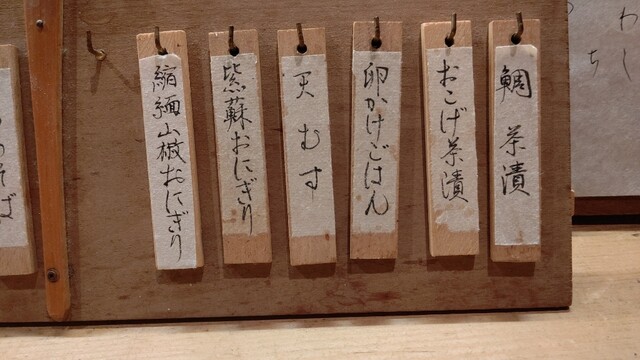 わし
ち
鯛茶漬
おこげ茶漬
卵かけごはん
天むす
紫蘇おにぎり
縮緬山椒おにぎり
そば